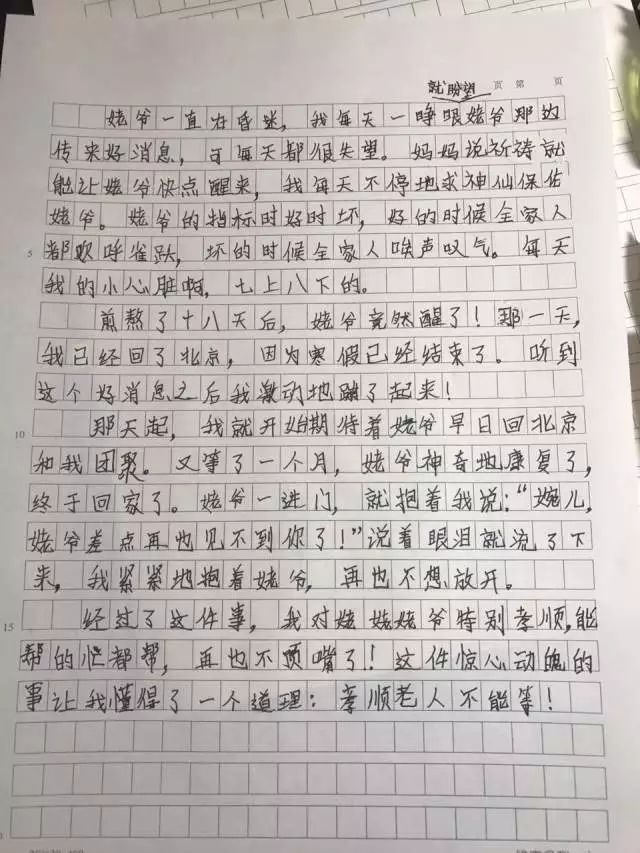 就盼望
页 第 页
姥爷一直在昏迷，我每天一睁眼姥爷那边
传来好消息，可每天都很失望。妈妈说祈祷就
能让姥爷快点醒来，我每天不停地求神仙保佑
姥爷。姥爷的指标时好时坏，好的时候全家人
5 都欢呼雀跃，坏的时候全家人唉声叹气。每天
我的小心脏啊，七上八下的。
煎熬了十八天后，姥爷竟然醒了！那一天，
我已经回了北京，因为寒假已经结束了。听到
这个好消息之后我激动地蹦了起来！
10 那天起，我就开始期待着姥爷早日回北京
和我团聚。又等了一个月，姥爷神奇地康复了，
终于回家了。姥爷一进门，就抱着我说：“婉儿，
姥爷差点再也见不到你了！”说着眼泪就流了下
来，我紧紧地抱着姥爷，再也不想放开。
15 经过了这件事，我对姥姥姥爷特别孝顺，能
帮的忙都帮，再也不顶嘴了！这件惊心动魄的
事让我懂得了一个道理：孝顺老人不能等！